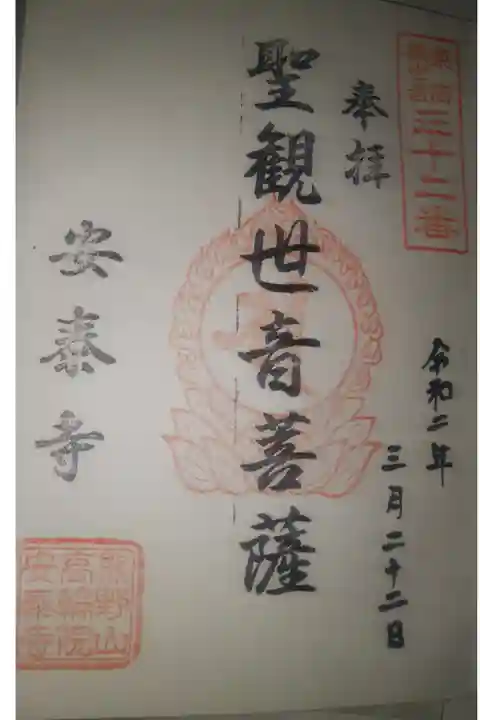 三十二番
奉拝
令和二年
三月二十二日
聖観世音菩薩
安泰寺
熊野山
高輪院
安泰寺